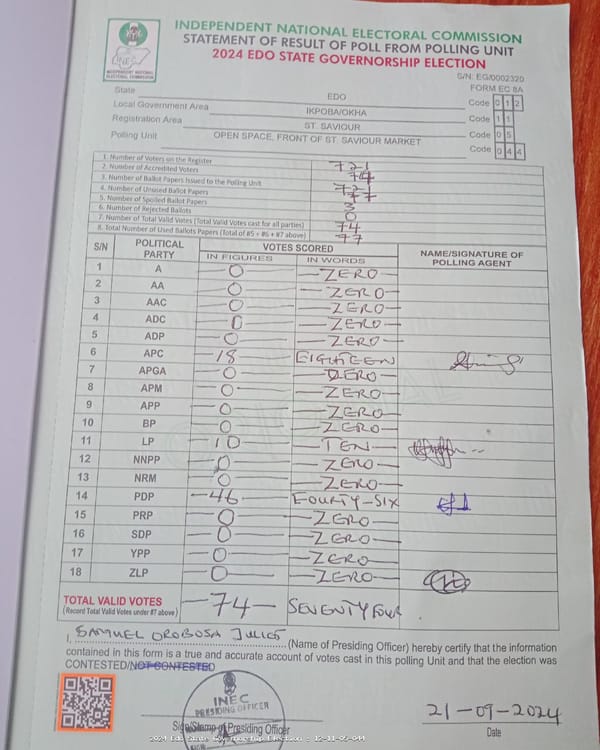 INDEPENDENT NATIONAL ELECTORAL COMMISSION
STATEMENT OF RESULT OF POLL FROM POLLING UNIT
2024 EDO STATE GOVERNORSHIP ELECTION
S/N: EG/0002320
FORM EC 8A
INEC
INDEPENDENT NATIONAL ELECTORAL COMMISSION
State EDO Code 0 1 2
Local Government Area IKPOBA/OKHA Code 1 1
Registration Area ST. SAVIOUR Code 0 5
Polling Unit OPEN SPACE, FRONT OF ST. SAVIOUR MARKET Code 0 4 4
1. Number of Voters on the Register 721
2. Number of Accredited Voters
3. Number of Ballot Papers Issued to the Polling Unit 721
4. Number of Unused Ballot Papers
5. Number of Spoiled Ballot Papers 3
6. Number of Rejected Ballots 0
7. Number of Total Valid Votes (Total Valid Votes cast for all parties) 74
8. Total Number of Used Ballots Papers (Total of #5 + #6 + #7 above) 77
S/N POLITICAL PARTY VOTES SCORED NAME/SIGNATURE OF POLLING AGENT
IN FIGURES IN WORDS
1 A 0 ZERO
2 AA 0 ZERO
3 AAC 0 ZERO
4 ADC 0 ZERO
5 ADP 0 ZERO
6 APC 18 EIGHTEEN
7 APGA 0 ZERO
8 APM 0 ZERO
9 APP 0 ZERO
10 BP 0 ZERO
11 LP 10 TEN
12 NNPP 0 ZERO
13 NRM 0 ZERO
14 PDP 46 FOURTY-SIX
15 PRP 0 ZERO
16 SDP 0 ZERO
17 YPP 0 ZERO
18 ZLP 0 ZERO
TOTAL VALID VOTES 74 SEVENTY FOUR
(Record Total Valid Votes under #7 above)
I, SAMUEL OROBOSA JULIET (Name of Presiding Officer) hereby certify that the information
contained in this form is a true and accurate account of votes cast in this polling Unit and that the election was
CONTESTED/NOT CONTESTED
INEC
PRESIDING OFFICER
Sign/Stamp of Presiding Officer
21-09-2024
Date
2024 Edo State Governorship Election : 12-11-05-044